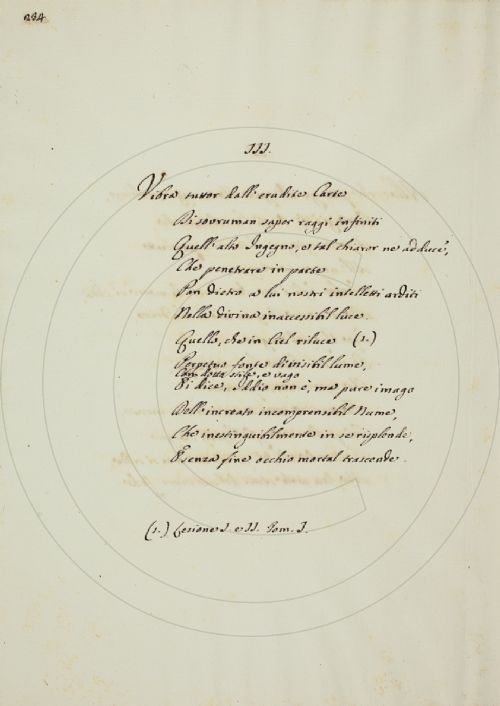 284
III.
Vibra tuttor dall' erudite Carte
Di sovruman saper raggi infiniti
Quell' alto Ingegno, e tal chiaror ne adduce,
Che penetrare in parte
Pon dietro a lui nostri intelletti arditi
Nella divina inaccessibil luce.
Quello, che in Ciel riluce (1.)
Perpetuo fonte di visibil lume,
Con dotto stile, e vago
Ei dice, Iddio non è, ma pare imago
Dell' increato incomprensibil Nume,
Che inestinguibilmente in se risplende,
E senza fine occhio mortal trascende.
(1.) Lezione I. e II. Tom. I.